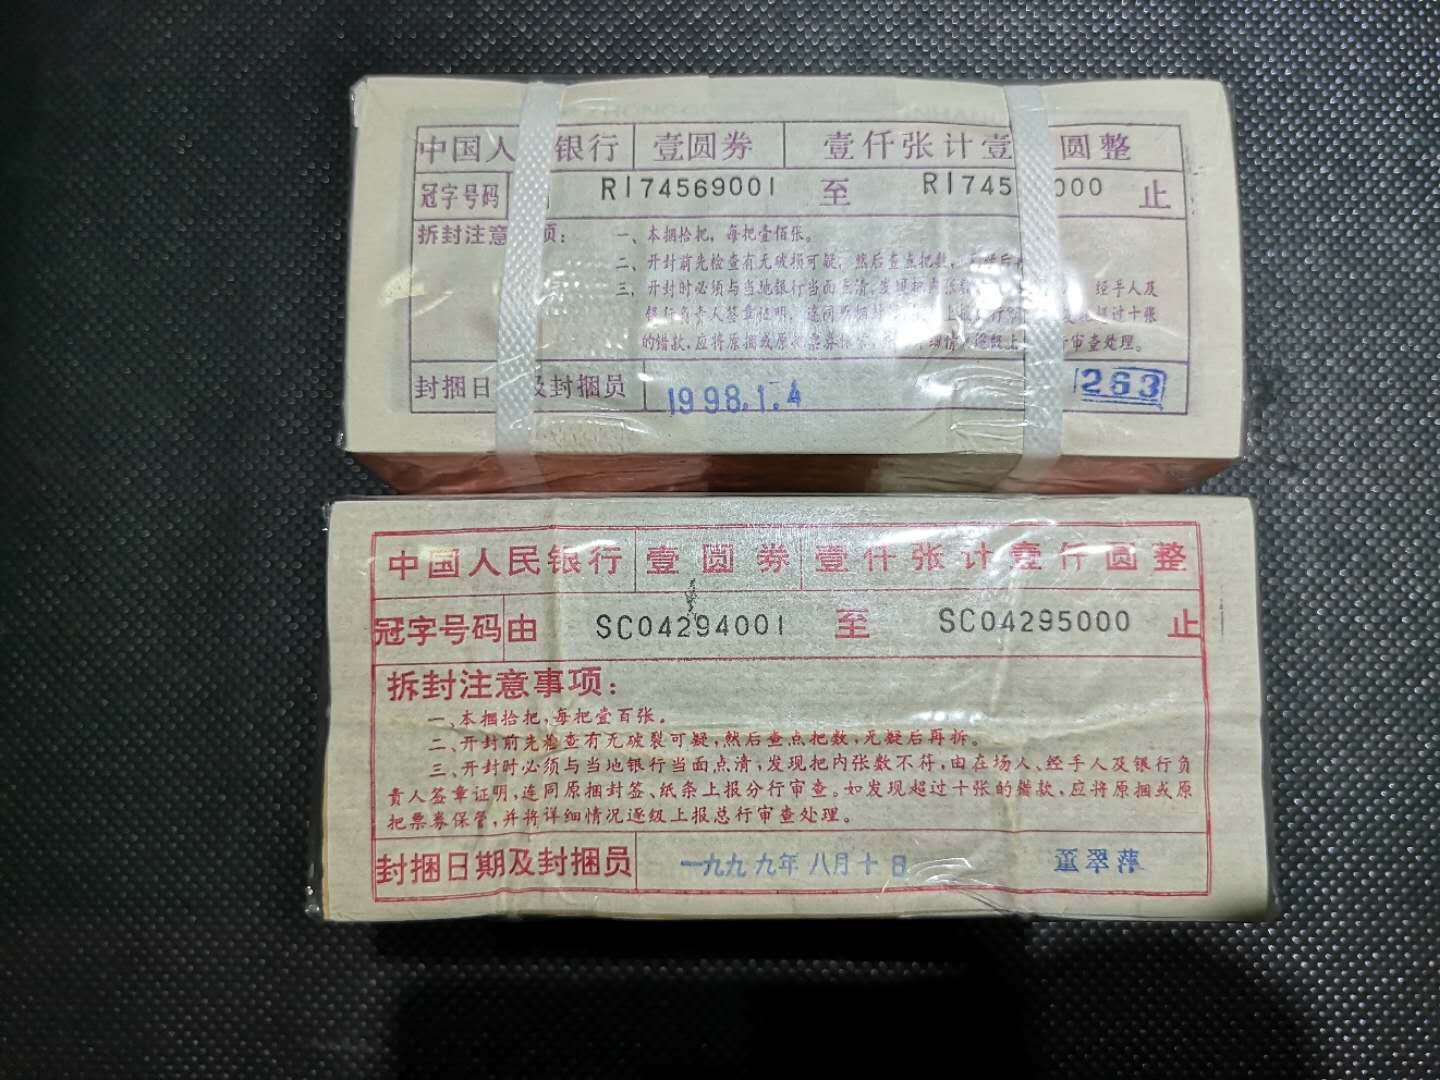 中国人 银行 壹圆券 壹仟张计壹 圆整
冠字号码 RI74569001 至 RI745 000 止
拆封注意 项： 一、本捆拾把，每把壹佰张。
二、开封前先检查有无破损可疑，然后查点把数，
三、开封时必须与当地银行当面点清，发现把内张数 经手人及
银行负责人签章证明，连同原捆封签、 上报分行 超过十张
的错款，应将原捆或原把票券保管， 详细情况逐级上 行审查处理。
封捆日 及封捆员 1998.1.4 1263
中国人民银行 壹圆券 壹仟张计壹仟圆整
冠字号码由 SC04294001 至 SC04295000 止
拆封注意事项：
一、本捆拾把，每把壹百张。
二、开封前先检查有无破裂可疑，然后查点把数，无疑后再拆。
三、开封时必须与当地银行当面点清，发现把内张数不符，由在场人、经手人及银行负
责人签章证明，连同原捆封签、纸条上报分行审查。如发现超过十张的错款，应将原捆或原
把票券保管，并将详细情况逐级上报总行审查处理。
封捆日期及封捆员 一九九九年八月十日 董翠萍